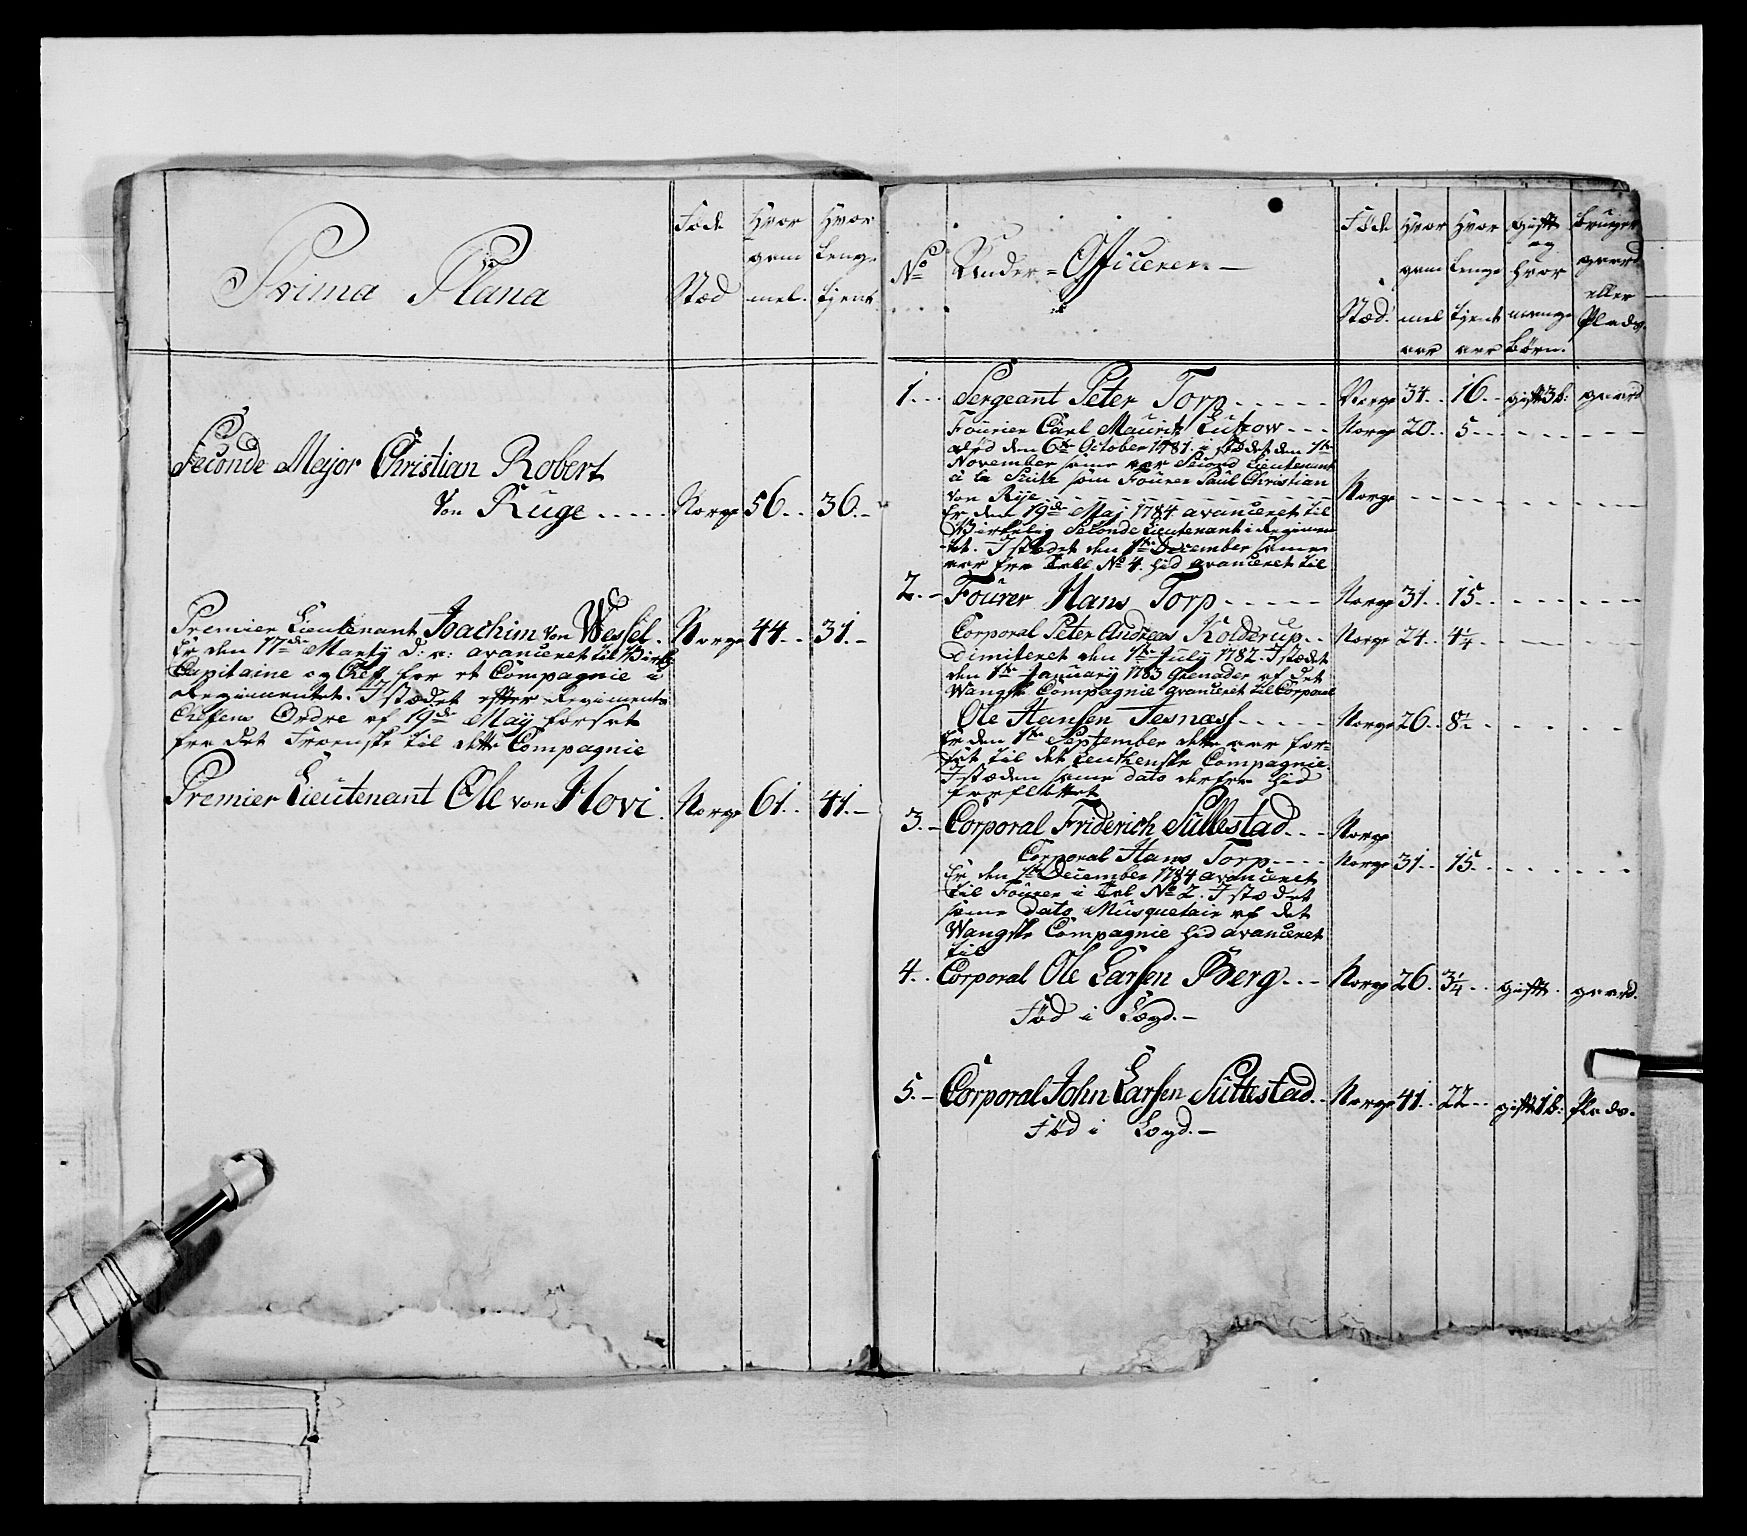 Prima Plana
Føde Stæd
Hvor gam mel.
Hvor lenge tjent
Seconde Major Christian Robert
von Ruge ..... Norge 56.. 36.-
Premier Lieutenant Joachim von Wessel. Norge 44.. 31.-
Er den 17de Marty d: a: avanceret til Wirk:
Capitaine og Chef for et Compagnie i
Regimentet. I stædet efter Regiments
Chefens Ordre af 19de May forsat
fra det Froenske til dette Compagnie
Premier Lieutenant Ole von Hovi. Norge 61.. 41.-
No Under=Officerer.-
Føde Stæd.
Hvor gam mel aar
Hvor lenge tjent aar
gift og hvor mange børn.
bruger gaard eller Plads.
1... Sergeant Peter Torp ..... Norge 34.. 16.. gift 3b: gaard
Fourier Carl Mauritz Lutzow --- Norge 20.. 5
død den 6te October 1781 i stædet den 1te
November samme aar Second Lieutenant
à la Suite som Fourer Paul Christian
von Rije Norge
Er den 19de Maj 1784 avanceret til
Wirkelig Seconde Lieutenant i Regimen
tet. I stædet den 1te December samme
aar fra Tall No 4. hid avanceret til
2.. Fourer Hans Torp ..... Norge 31.. 15..
Corporal Peter Andreas Kolderup.. Norge 24.. 4¼
Dimiteret den 1te July 1782. I stædet
den 1te January 1783 Grenader af det
Wangske Compagnie avanceret til Corporal
Ole Hansen Tesness ..... Norge 26.. 8½
Er den 1te September dette aar for=
sat til det Leuthenske Compagnie.
I stæden samme dato derfra hid
forflottet
3.- Corporal Friderich Sillestad... Norge
Corporal Hans Torp.... Norge 31.. 15..
Er den 1te December 1784 avanceret
til Fourer i Tal No 2. I stædet
samme dato Musquetair af det
Wangske Compagnie hid avanceret
til
4.. Corporal Ole Larsen Berg... Norge 26.. 3¼.. gift. gaard.
Fød i Lægd.-
5.- Corporal John Larsen Sillestad.. Norge 41.. 22.. gift 1b: Plads.
Fød i Lægd.-